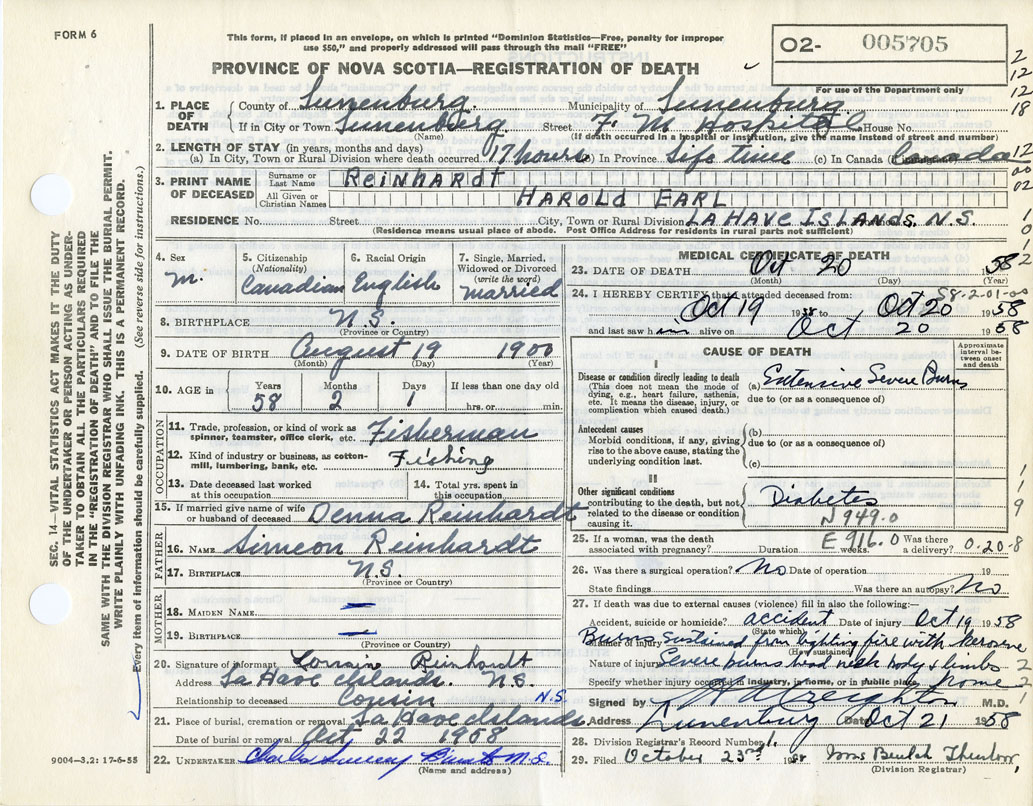 FORM 6
This form, if placed in an envelope, on which is printed "Dominion Statistics—Free, penalty for improper
use $50," and properly addressed will pass through the mail "FREE"
O2- 005705
PROVINCE OF NOVA SCOTIA—REGISTRATION OF DEATH
For use of the Department only
2
12
12
18
12
00
02
1
0
1
2
SEC. 14—VITAL STATISTICS ACT MAKES IT THE DUTY
OF THE UNDERTAKER OR PERSON ACTING AS UNDER-
TAKER TO OBTAIN ALL THE PARTICULARS REQUIRED
IN THE "REGISTRATION OF DEATH" AND TO FILE THE
SAME WITH THE DIVISION REGISTRAR WHO SHALL ISSUE THE BURIAL PERMIT.
WRITE PLAINLY WITH UNFADING INK. THIS IS A PERMANENT RECORD.
Every item of information should be carefully supplied. (See reverse side for instructions.)
1. PLACE OF DEATH
County of Lunenburg Municipality of Lunenburg
If in City or Town Lunenburg Street F. M. Hospital House No.
(Name) (If death occurred in a hospital or institution, give the name instead of street and number)
2. LENGTH OF STAY (in years, months and days)
(a) In City, Town or Rural Division where death occurred 17 hours (b) In Province Life time (c) In Canada Canada
3. PRINT NAME OF DECEASED
Surname or Last Name REINHARDT
All Given or Christian Names HAROLD EARL
RESIDENCE No. Street City, Town or Rural Division LA HAVE ISLANDS, N.S.
(Residence means usual place of abode. Post Office Address for residents in rural parts not sufficient)
4. Sex M.
5. Citizenship (Nationality) Canadian
6. Racial Origin English
7. Single, Married, Widowed or Divorced (write the word) married
8. BIRTHPLACE N.S.
(Province or Country)
9. DATE OF BIRTH August 19 1900
(Month) (Day) (Year)
10. AGE in Years Months Days If less than one day old
58 2 1 hrs. or min.
OCCUPATION
11. Trade, profession, or kind of work as
spinner, teamster, office clerk, etc. Fisherman
12. Kind of industry or business, as cotton-
mill, lumbering, bank, etc. Fishing
13. Date deceased last worked
at this occupation
14. Total yrs. spent in
this occupation
15. If married give name of wife
or husband of deceased Denna Reinhardt
FATHER
16. NAME Simeon Reinhardt
17. BIRTHPLACE N.S.
(Province or Country)
MOTHER
18. MAIDEN NAME —
19. BIRTHPLACE —
(Province or Country)
20. Signature of informant Lorrain Reinhardt
Address La Have Islands. N.S.
Relationship to deceased Cousin N.S.
21. Place of burial, cremation or removal La Have Islands
Date of burial or removal Oct 22 1958
22. UNDERTAKER
(Name and address)
9004—3.2: 17-6-55
MEDICAL CERTIFICATE OF DEATH
23. DATE OF DEATH Oct 20 1958
(Month) (Day) (Year)
58-2-01-00
24. I HEREBY CERTIFY that I attended deceased from:
Oct 19 1958 Oct 20 1958
and last saw him alive on Oct 20 1958
CAUSE OF DEATH
Approximate
interval be-
tween onset
and death
I
Disease or condition directly leading to death
(This does not mean the mode of
dying, e.g., heart failure, asthenia,
etc. It means the disease, injury, or
complication which caused death.)
(a) Extensive Severe Burns
due to (or as a consequence of)
Antecedent causes
Morbid conditions, if any, giving
rise to the above cause, stating the
underlying condition last.
(b)
due to (or as a consequence of)
(c)
II
Other significant conditions
contributing to the death, but not
related to the disease or condition
causing it.
Diabetes
N949.0
1
1
9
25. If a woman, was the death E916.0 Was there
associated with pregnancy? Duration weeks. a delivery? 0-20-8
26. Was there a surgical operation? No Date of operation 19
State findings Was there an autopsy? No
27. If death was due to external causes (violence) fill in also the following:—
Accident, suicide or homicide? accident Date of injury Oct 19 1958
(State which)
Manner of injury Burns sustained from lighting fire with kerosene
(How sustained)
Nature of injury Severe burns head neck body & limbs 2
Specify whether injury occurred in industry, in home, or in public place home 2
Signed by H A Creighton M.D. 1
Address Lunenburg Date Oct 21 1958
28. Division Registrar's Record Number 1.
29. Filed October 23rd 1958
(Division Registrar)